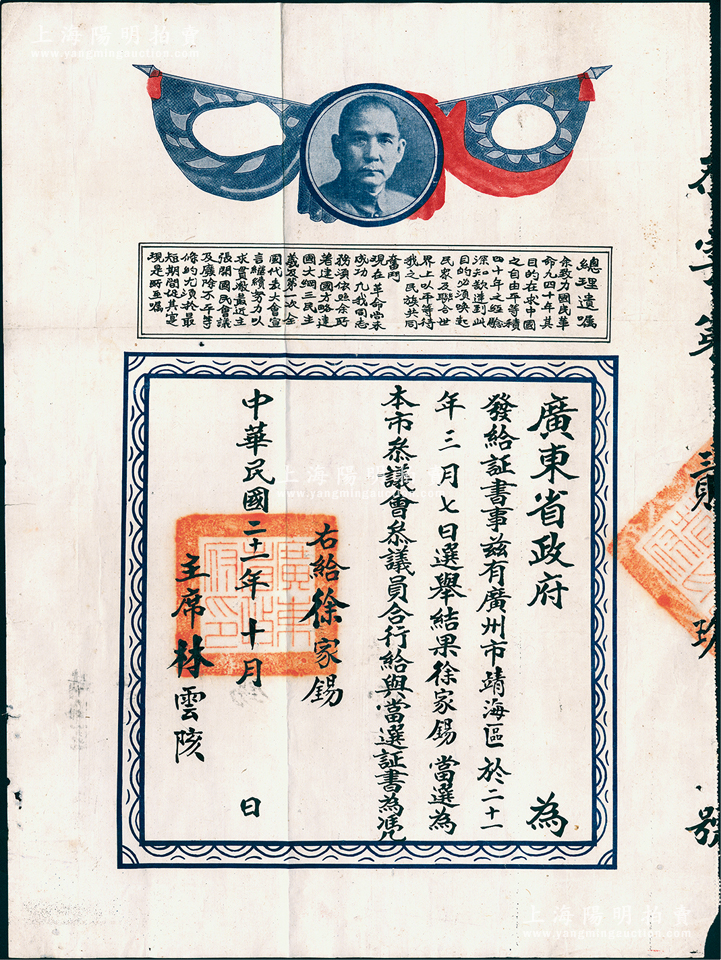 上海陽明拍賣
www.yangmingauction.com
總理遺囑
余致力國民革
命凡四十年其
目的在求中國
之自由平等積
四十年之經驗
深知欲達到此
目的必須喚起
民衆及聯合世
界上以平等待
我之民族共同
奮鬥
現在革命尚未
成功凡我同志
務須依照余所
著建國方略建
國大綱三民主
義及第一次全
國代表大會宣
言繼續努力以
求貫澈最近主
張開國民會議
及廢除不平等
條約尤須於最
短期間促其實
現是所至囑
廣東省政府 為
發給証書事茲有廣州市靖海區於二十一
年三月七日選舉結果徐家錫當選為
本市参議會参議員合行給與當選証書為凴
右給徐家錫
中華民國二十一年十月 日
主席林雲陔
字第 貳 玖 號
上海陽明拍賣
www.yangmingauction.com
上海陽明拍賣
www.yangmingauction.com